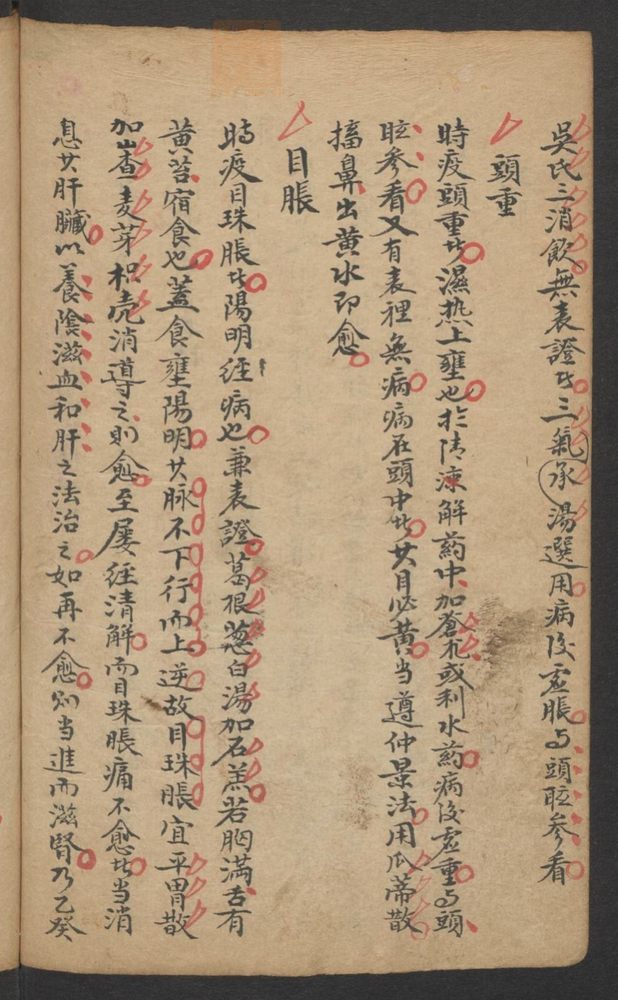 吳氏三消飲無表證者三氣承湯選用病後虛脹与頭眩参看
頭重
時疫頭重者濕热上壅也於清凉解药中加蒼朮或利水药病後虛重与頭
眩参看又有表裡無病病在頭中者其目必黄当遵仲景法用瓜蒂散
搐鼻出黄水即愈
目脹
時疫目珠脹者陽明經病也兼表證葛根葱白湯加石羔若胸满舌有
黄苔宿食也蓋食壅陽明其脉不下行而上逆故目珠脹宜平胃散
加山查麦芽枳壳消導之則愈至屡經清解而目珠脹痛不愈者当消
息其肝臟以養陰滋血和肝之法治之如再不愈則当進而滋腎乃乙癸